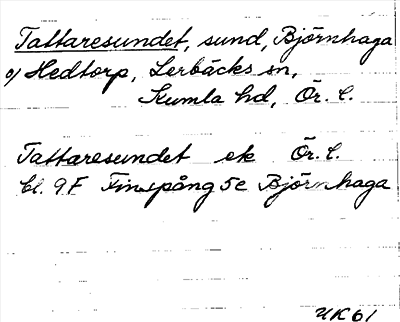 Tattaresundet, sund, Björnhaga
o/ Hedtorp, Lerbäcks sn,
Kumla hd, Ör. l.
Tattaresundet ek Ör. l.
bl. 9F Finspång 5e Björnhaga
UK 61